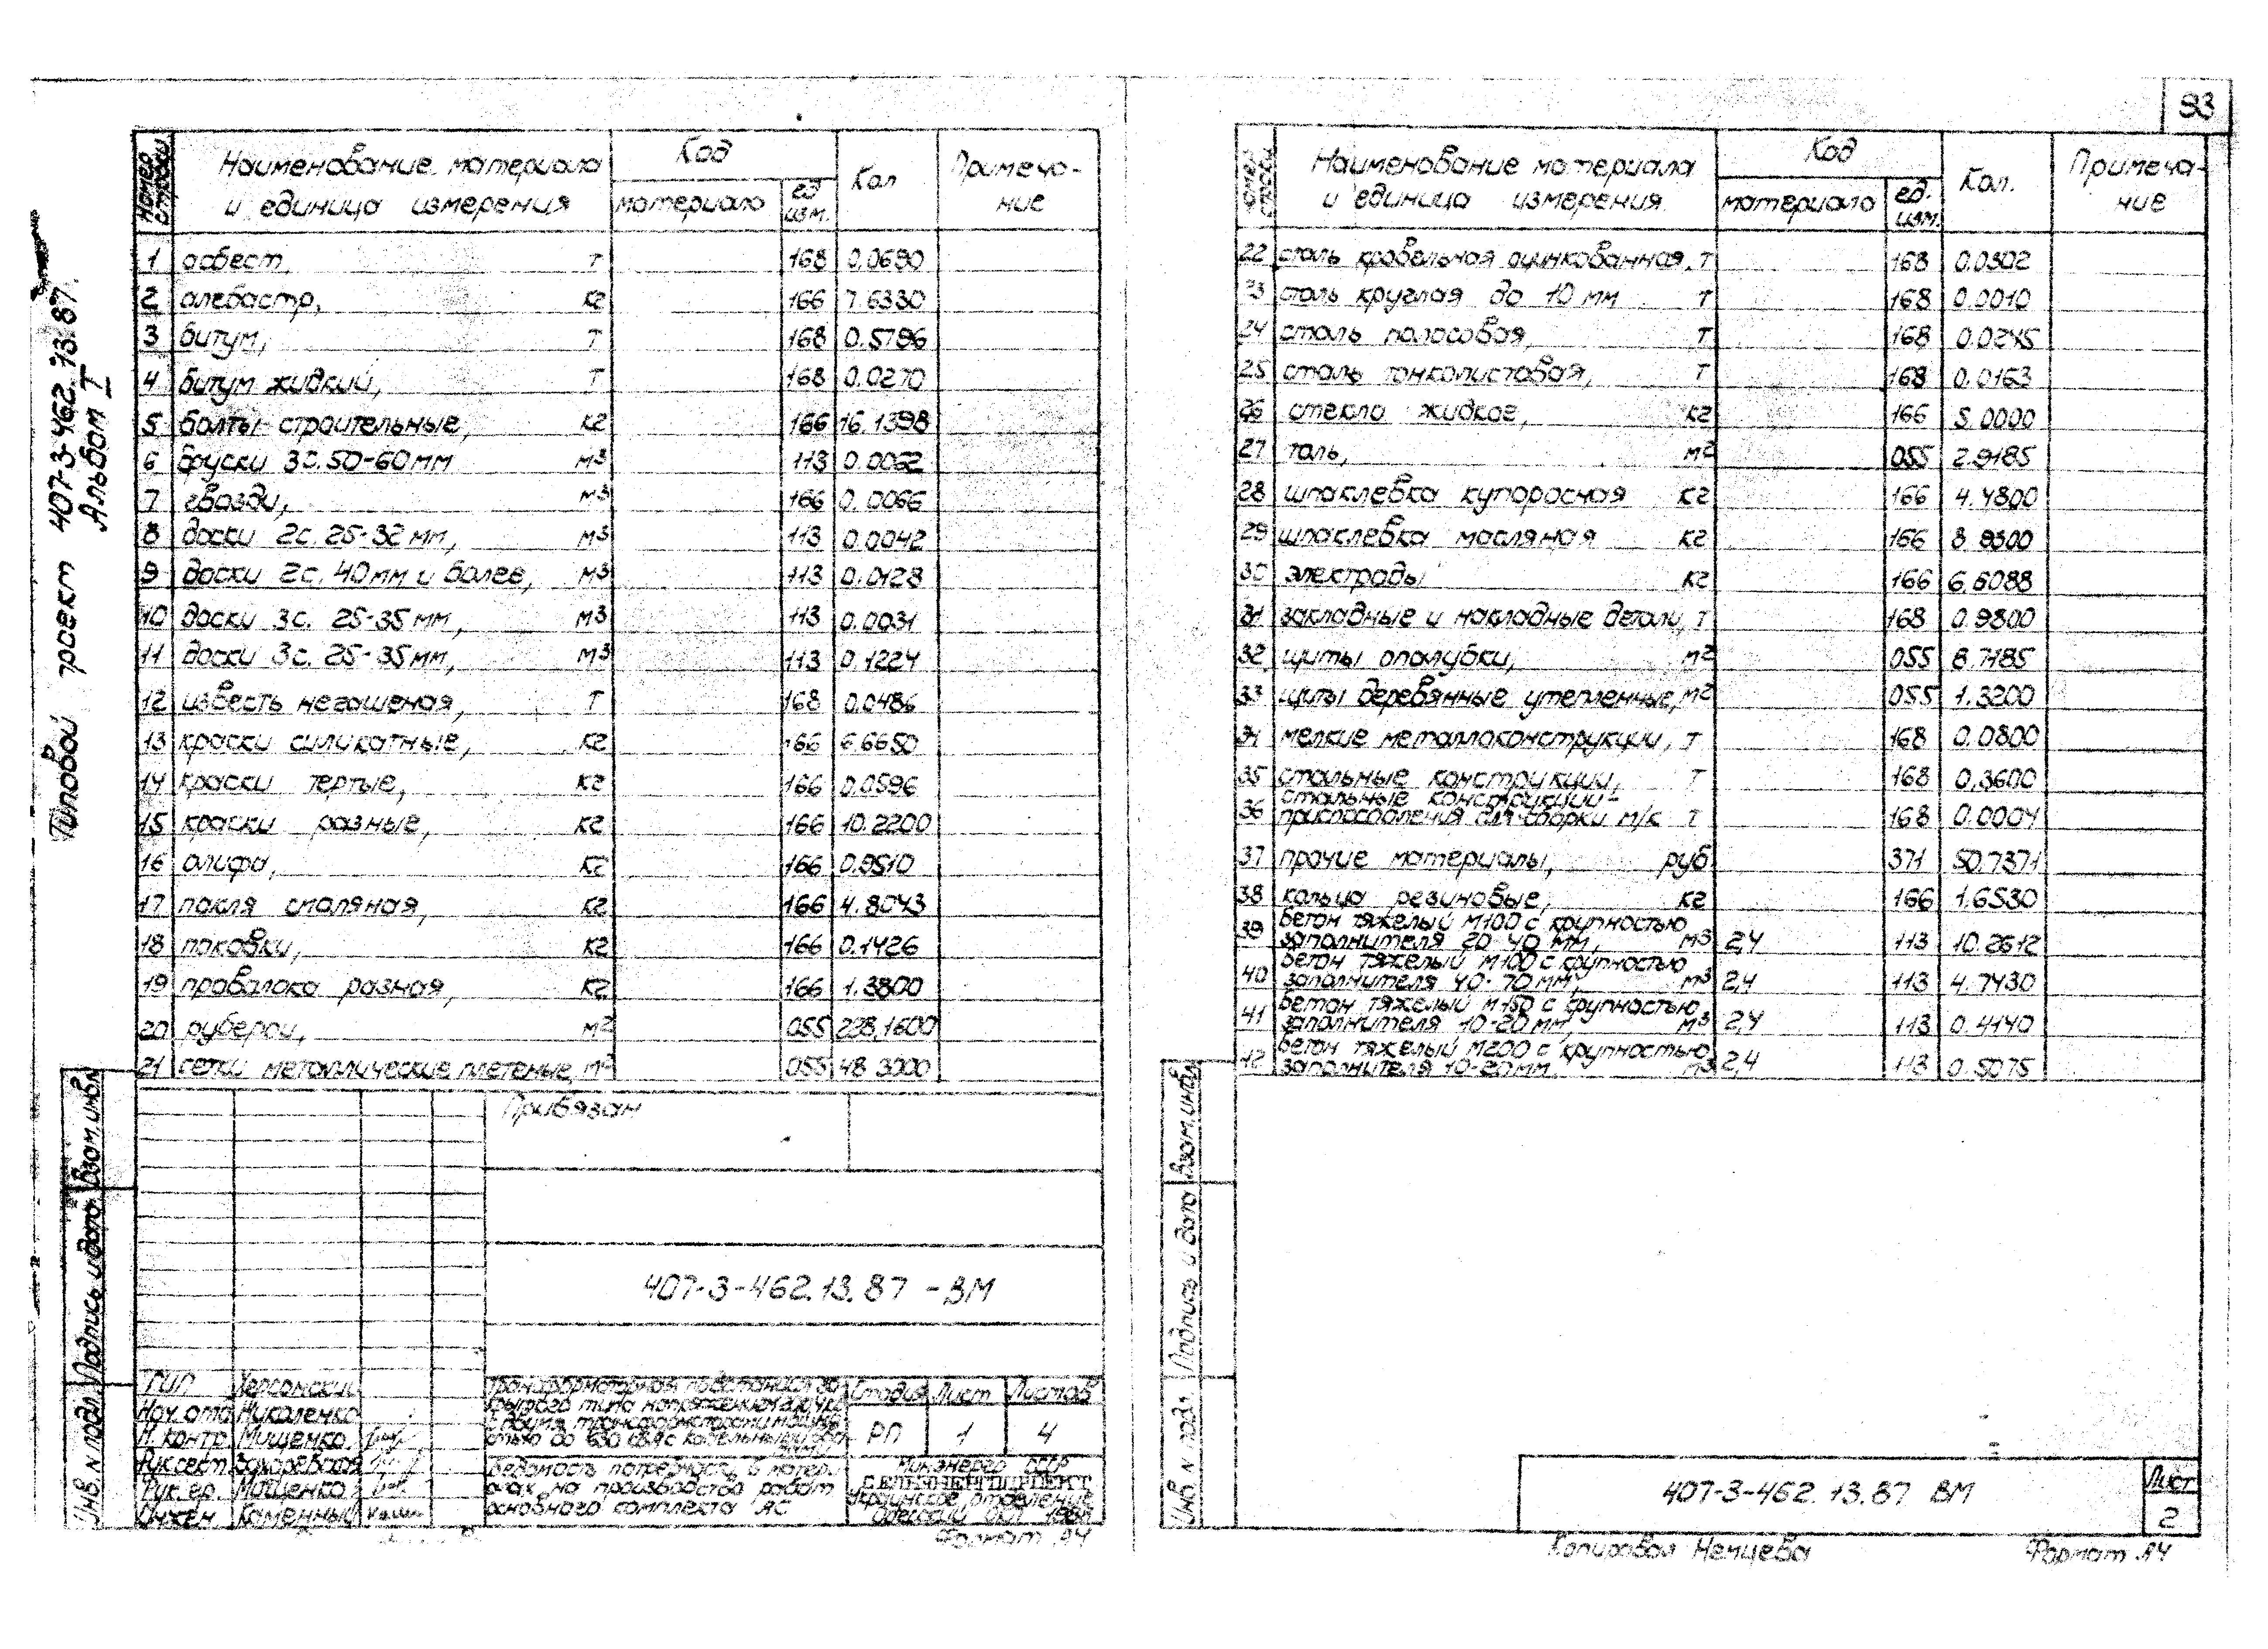 Типовой проект 407-3-462.13.87.
Альбом I
Номер строки
Наименование материала
и единица измерения
Код
материала
ед. изм.
Кол
Примеча-
ние
1 асбест, т 168 0.0690
2 алебастр, кг 166 7.6330
3 битум, т 168 0.5796
4 битум жидкий, т 168 0.0270
5 болты строительные, кг 166 16.1398
6 бруски 3с. 50-60мм м3 113 0.0062
7 гвозди, м3 166 0.0066
8 доски 2с. 25-32 мм, м3 113 0.0042
9 доски 2с. 40мм и более, м3 113 0.0128
10 доски 3с. 25-35 мм, м3 113 0.0031
11 доски 3с. 25-35мм, м3 113 0.1224
12 известь негашеная, т 168 0.0486
13 краски силикатные, кг 166 6.6650
14 краски тертые, кг 166 0.0596
15 краски разные, кг 166 10.2200
16 олифа, кг 166 0.9510
17 пакля смоляная, кг 166 4.8043
18 поковки, кг 166 0.1426
19 проволока разная, кг 166 1.3800
20 рубероид, м2 055 228.1600
21 сетки металлические плетеные, м2 055 48.3000
Привязан
407-3-462.13.87 -ВМ
ГИП Херсонский
Нач. отд Николенко
Н. контр. Мищенко
Рук.сект. Захаревская
Рук. гр. Мащенко
Инжен Каменный
Трансформаторная подстанция за-
крытого типа напряжением
стью до 630 кВА с кабельными
Ведомость потребности в матери-
алах на производство работ
основного комплекта АС
Стадия Лист Листов
РП 1 4
Минэнерго СССР
СЕЛЬЭНЕРГОПРОЕКТ
Украинское отделение
Одесский
Формат А4
Инв. N подл. Подпись и дата Взам. инв.
93
Наименование материала
и единица измерения
Код
материала
ед. изм.
Кол.
Примеча-
ние
22 сталь кровельная оцинкованная, т 168 0.0302
23 сталь круглая до 10 мм т 168 0.0010
24 сталь полосовая, т 168 0.0245
25 сталь тонколистовая, т 168 0.0163
26 стекло жидкое, кг 166 5.0000
27 толь, м2 055 2.9185
28 шпаклевка купоросная кг 166 4.4800
29 шпаклевка масляная кг 166 8.9300
30 электроды кг 166 6.6088
31 закладные и накладные детали, т 168 0.9800
32 щиты опалубки, м2 055 8.7185
33 щиты деревянные утепленные, м2 055 1.3200
34 мелкие металлоконструкции, т 168 0.0800
35 стальные конструкции, т 168 0.3600
36 стальные конструкции-
приспособления для сборки м/к т 168 0.0004
37 прочие материалы, руб 371 50.7371
38 кольца резиновые, кг 166 1.6530
39 бетон тяжелый М100 с крупностью
заполнителя 20-40 мм, м3 2,4 113 10.2612
40 бетон тяжелый М100 с крупностью
заполнителя 40-70мм, м3 2,4 113 4.7430
41 бетон тяжелый М150 с крупностью
заполнителя 10-20 мм, м3 2,4 113 0.4140
42 бетон тяжелый М200 с крупностью
заполнителя 10-20мм. м3 2,4 113 0.5075
407-3-462.13.87 ВМ
Лист
2
Копировал Немцева
Формат А4
Инв. N подл. Подпись и дата Взам. инв.